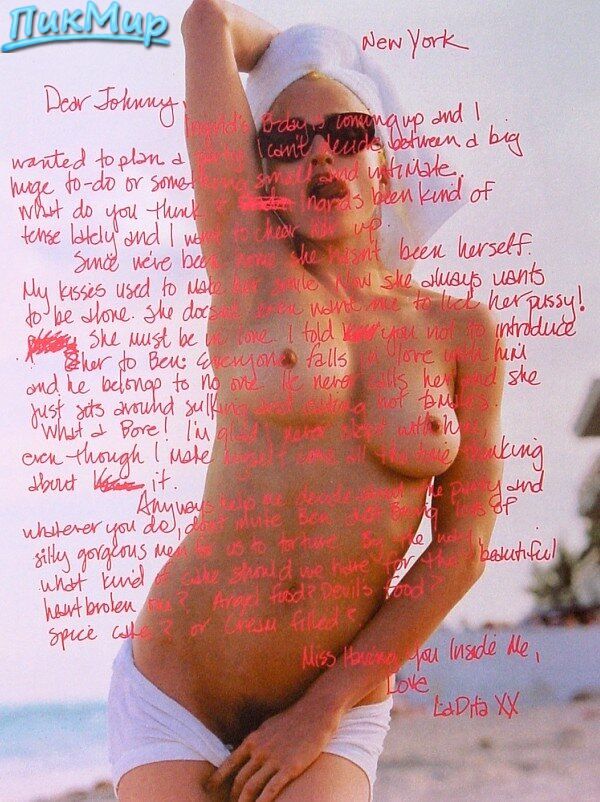 ПикМир
New York
Dear Johnny,
Ingrid's B-day is coming up and I
wanted to plan a party. I can't decide between a big
huge to-do or something small and intimate.
What do you think? Ingrid's been kind of
tense lately and I want to cheer her up.
Since we've been home she hasn't been herself.
My kisses used to make her smile. Now she always wants
to be alone. She doesn't even want me to lick her pussy!
She must be in love. I told you not to introduce
her to Ben. Everyone falls in love with him
and he belongs to no one. He never calls her and she
just sits around sulking and eating hot tamales.
What a Bore! I'm glad I never slept with him,
even though I make myself come all the time thinking
about it.
Anyways help me decide about the party and
whatever you do, don't invite Ben. Just bring lots of
silly gorgeous men for us to torture. By the way,
what kind of cake should we have for the beautiful
heartbroken one? Angel food? Devil's food?
Spice cake? or Cream filled?
Miss Having You Inside Me,
Love
LaDita XX